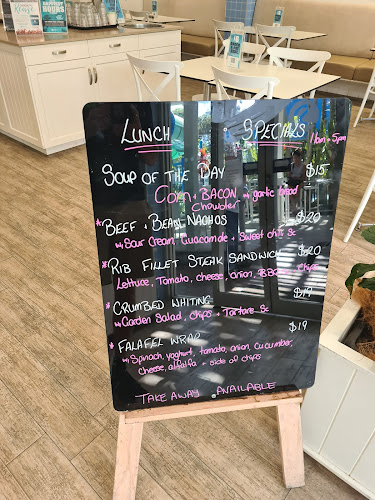 LUNCH SPECIALS 11am - 5pm
SOUP OF THE DAY $15
CORN + BACON + garlic bread
Chowder
* BEEF + BEAN NACHOS $20
w/ Sour Cream, Guacamole + Sweet chilli Sc
* RIB FILLET STEAK SANDWICH $20
Lettuce, Tomato, cheese, onion, BBQ + Chips
* CRUMBED WHITING $19
w/ Garden Salad, Chips + Tartare Sc
* FALAFEL WRAP $19
w/ Spinach, yoghurt, tomato, onion, cucumber,
cheese, alfalfa + side of chips
TAKE AWAY AVAILABLE